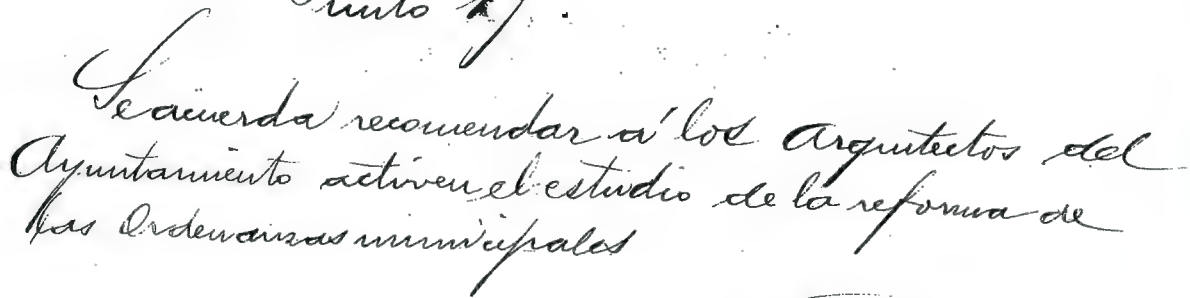 Se acuerda recomendar á los Arquitectos del
Ayuntamiento activen el estudio de la reforma de
las Ordenanzas municipales